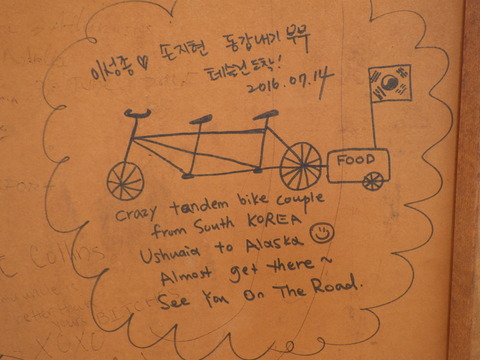 이성종♡ 손지현 동갑내기 부부
테슬린 도착!
2016.07.14
FOOD
crazy tandem bike couple
from South KOREA
Ushuaia to Alaska
Almost get there~
See You On The Road.
Collins
XOXO